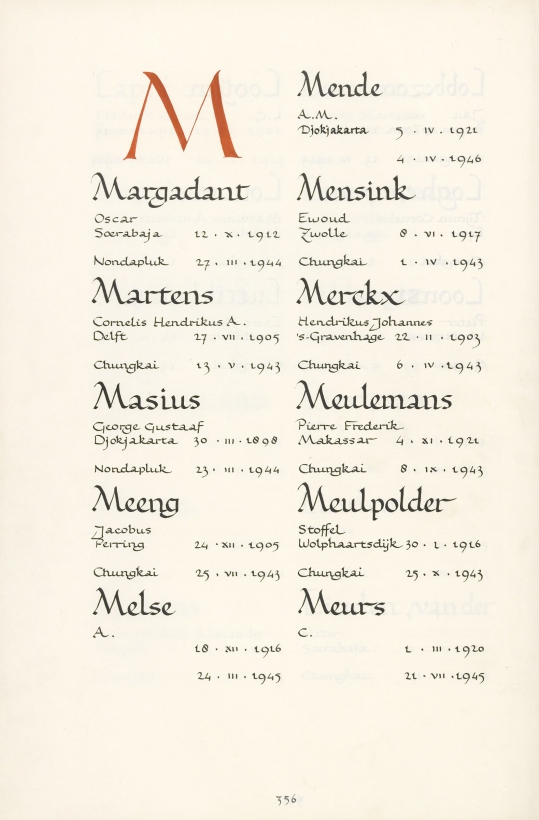 M
Margadant
Oscar
Soerabaja 12 · x · 1912
Nondapluk 27 · III · 1944
Martens
Cornelis Hendrikus A.
Delft 27 · VII · 1905
Chungkai 13 · V · 1943
Masius
George Gustaaf
Djokjakarta 30 · III · 1898
Nondapluk 23 · III · 1944
Meeng
Jacobus
Perring 24 · XII · 1905
Chungkai 25 · VII · 1943
Melse
A.
18 · XII · 1916
24 · III · 1945
Mende
A.M.
Djokjakarta 5 · IV · 1921
4 · IV · 1946
Mensink
Ewoud
Zwolle 8 · VI · 1917
Chungkai 1 · IV · 1943
Merckx
Hendrikus Johannes
's-Gravenhage 22 · II · 1903
Chungkai 6 · IV · 1943
Meulemans
Pierre Frederik
Makassar 4 · XI · 1921
Chungkai 8 · IX · 1943
Meulpolder
Stoffel
Wolphaartsdijk 30 · 1 · 1916
Chungkai 25 · X · 1943
Meurs
C.
1 · III · 1920
21 · VII · 1945
356